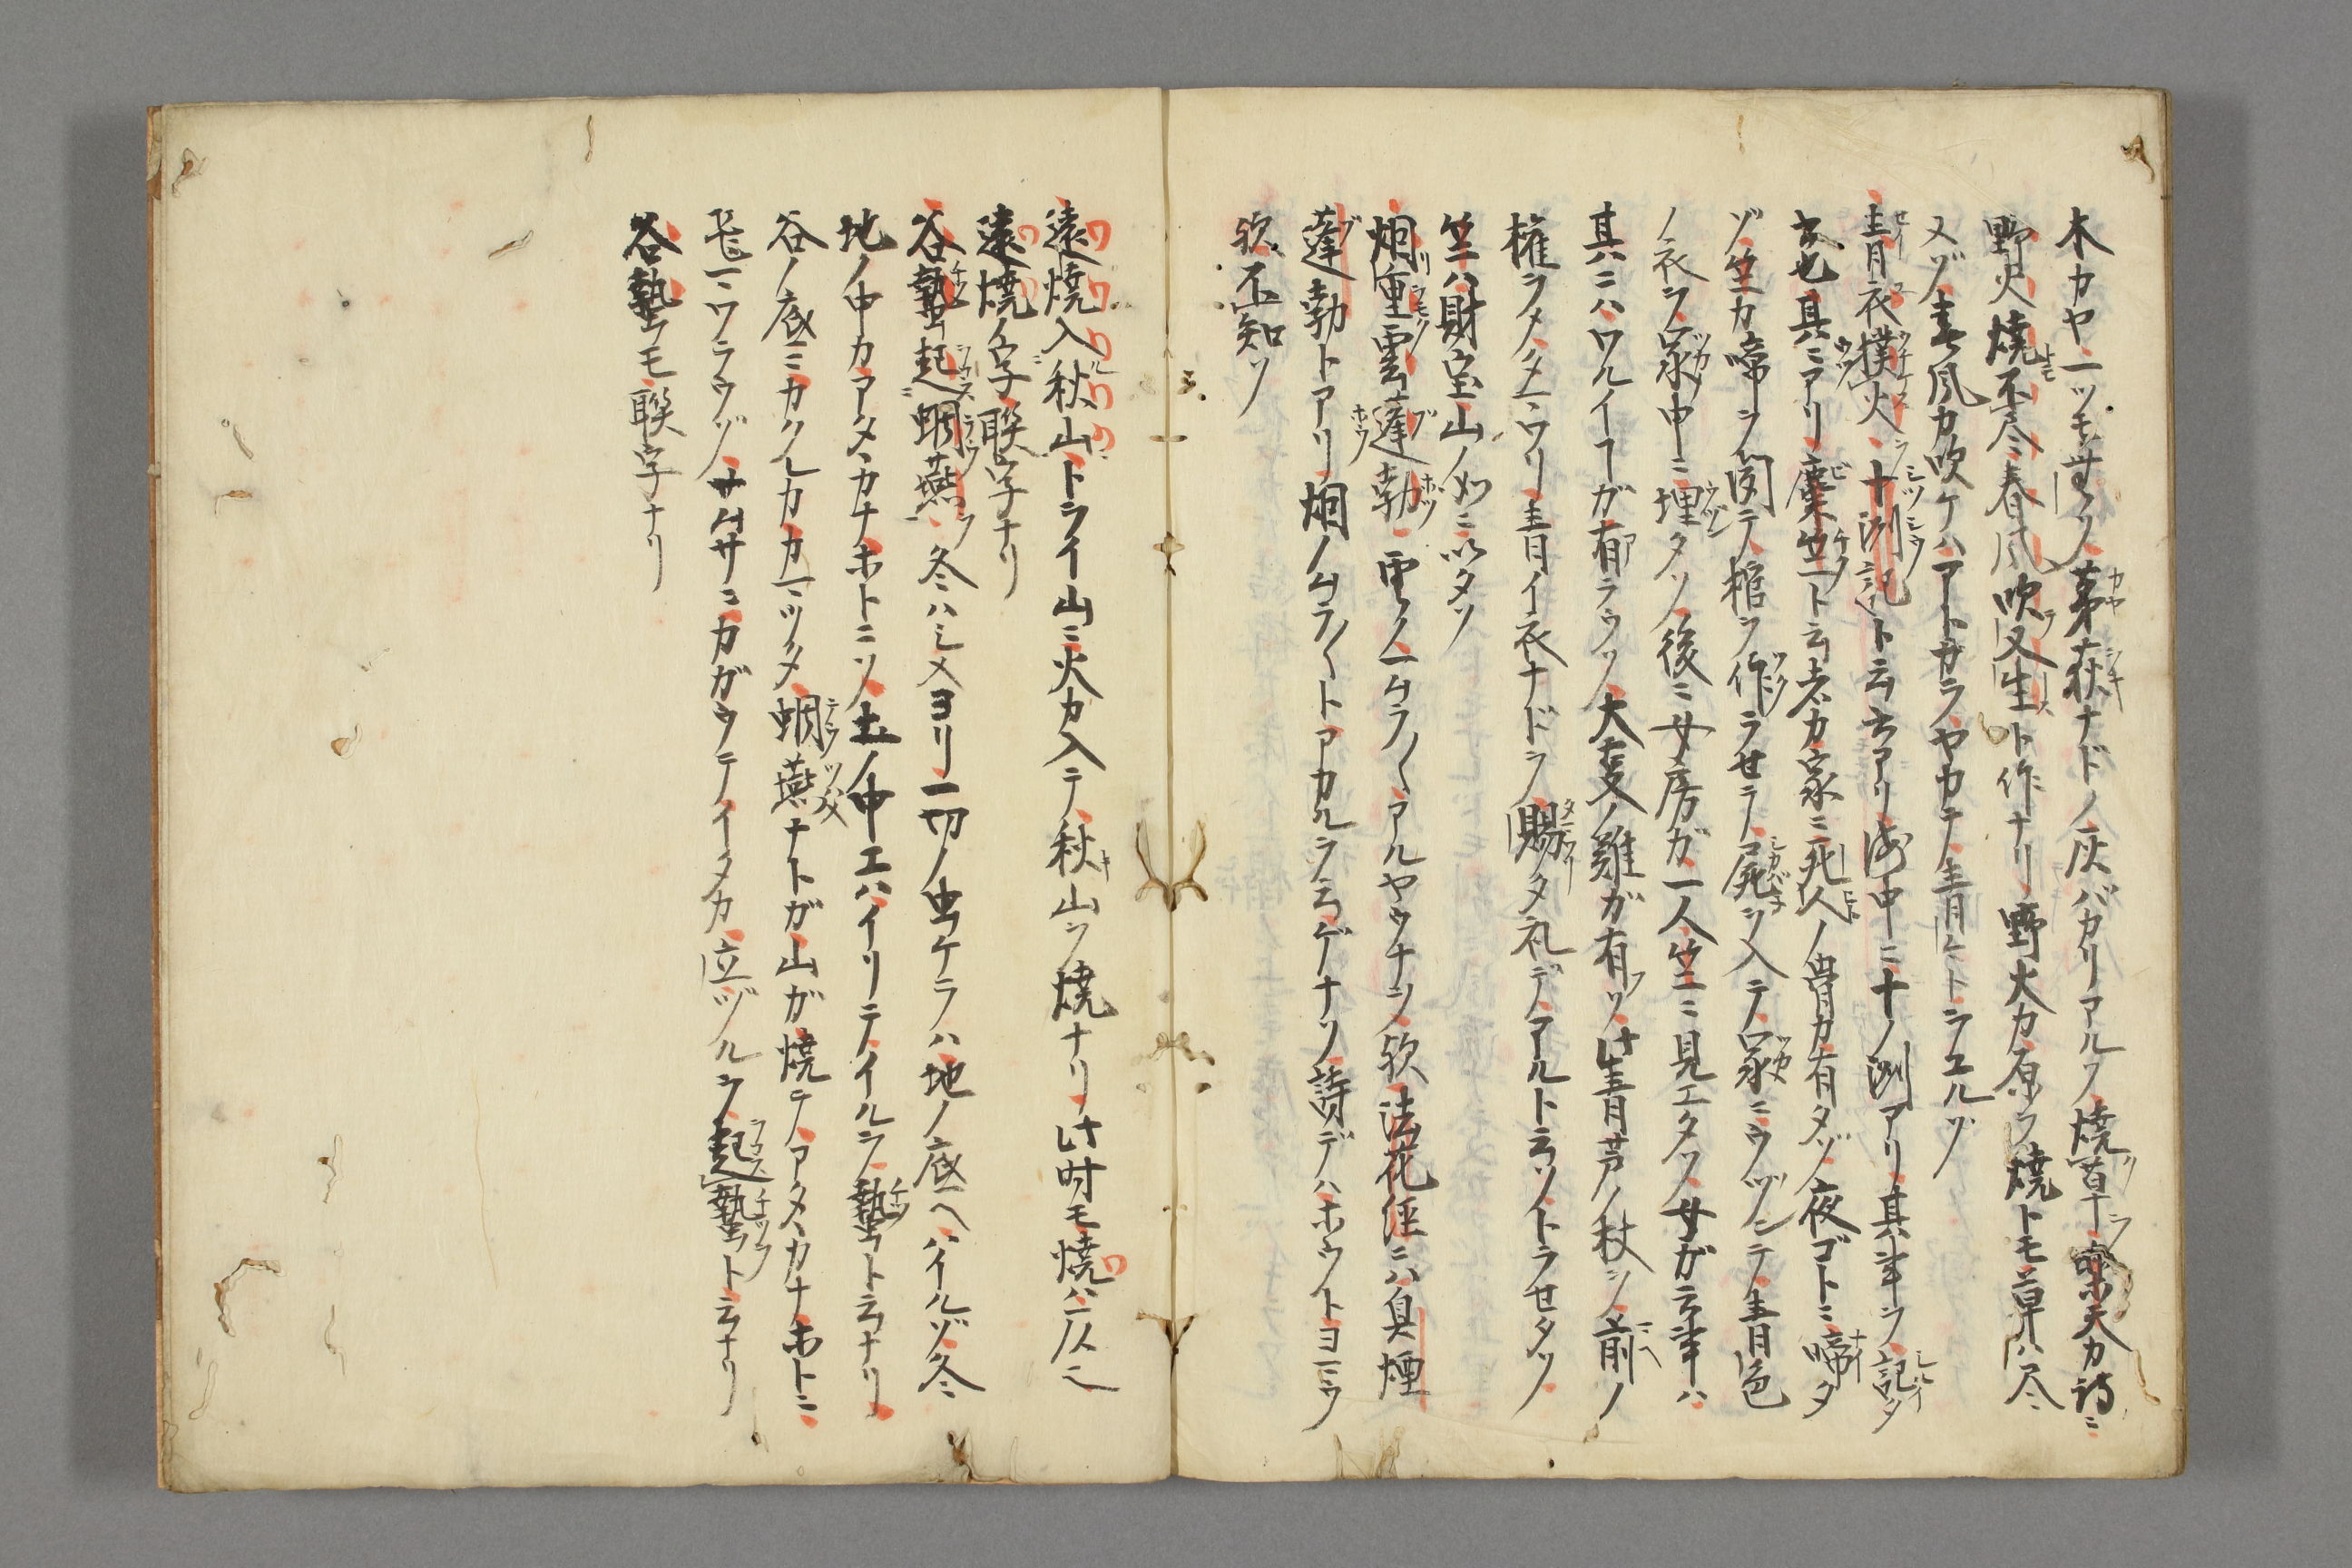 木カヤ一ツモ無ソ茅荻ナドノ灰バカリアルソ焼草ラ楽天カ詩ニ
野火焼不尽春風吹又生ト作ナリ野火カ原ヲ焼トモ草ハ尽ニ
又ゾ春風カ吹ケハアトカラヤカテ青ケトヲエルゾ
青衣撲火十洲記ト云アリ海中ニ十ノ洲アリ其事ヲ記タ
也其ニアリ糜竺ト云者カ家ニ死人ノ骨カ有タゾ夜ゴトニ啼タ
ゾ竺カ啼ヲ聞テ棺ヲ作ラセテ屍ヲ入テ冢ニウヅンテ青色
ノ衣ヲ冢中ニ埋タソ後ニ女房ガ一人竺ニ見エタソ女ガ云事ハ
其ハニハワルイ丁ガ有ラウソ大変ノ難ガ有ソ此青芦ノ杖ヲ前ノ
権ヲメタニワリ青イ衣ナドヲ賜タ礼デアルト云ソトラセタソ
竺ハ財宝山ノ如ニ以タソ
烟重雲蓬勃雲ノムラ〱アルヤウナソ歟法花経ニハ臭煙
蓬勃トアリ烟ノムラ〱トアカルヲ云ゲナソ詩デハホウトヨミウ
歟不知ソ
遠焼入秋山トヲイ山ニ火カ入テ秋山ヲ焼ナリ此時モ焼ハ仄ニ
遠焼ノ字聯字ナリ
谷蟄起蜩燕冬ハシメヨリ一切ノ虫ケラハ地ノ底ヘハイルゾ冬
地ノ中カアタヽカナホトニソ土ノ中エハイリテイルヲ蟄ト云ナリ
谷ノ底ニカクレカカニツタ蜩燕ナトガ山ガ焼テアタヽカナホトニ
ワラウゾサムサニカガウテイタカ立ヅルヲ起蟄ト云ナリ
谷蟄モ聯字ナリ